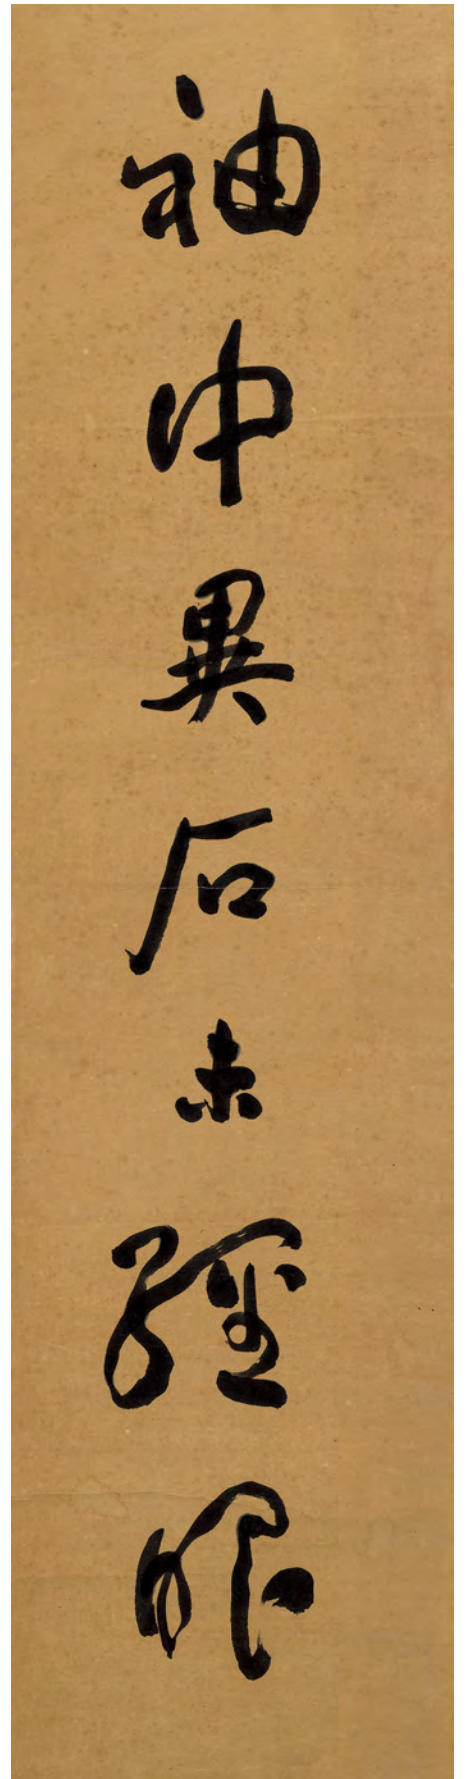 袖中異石未經眼